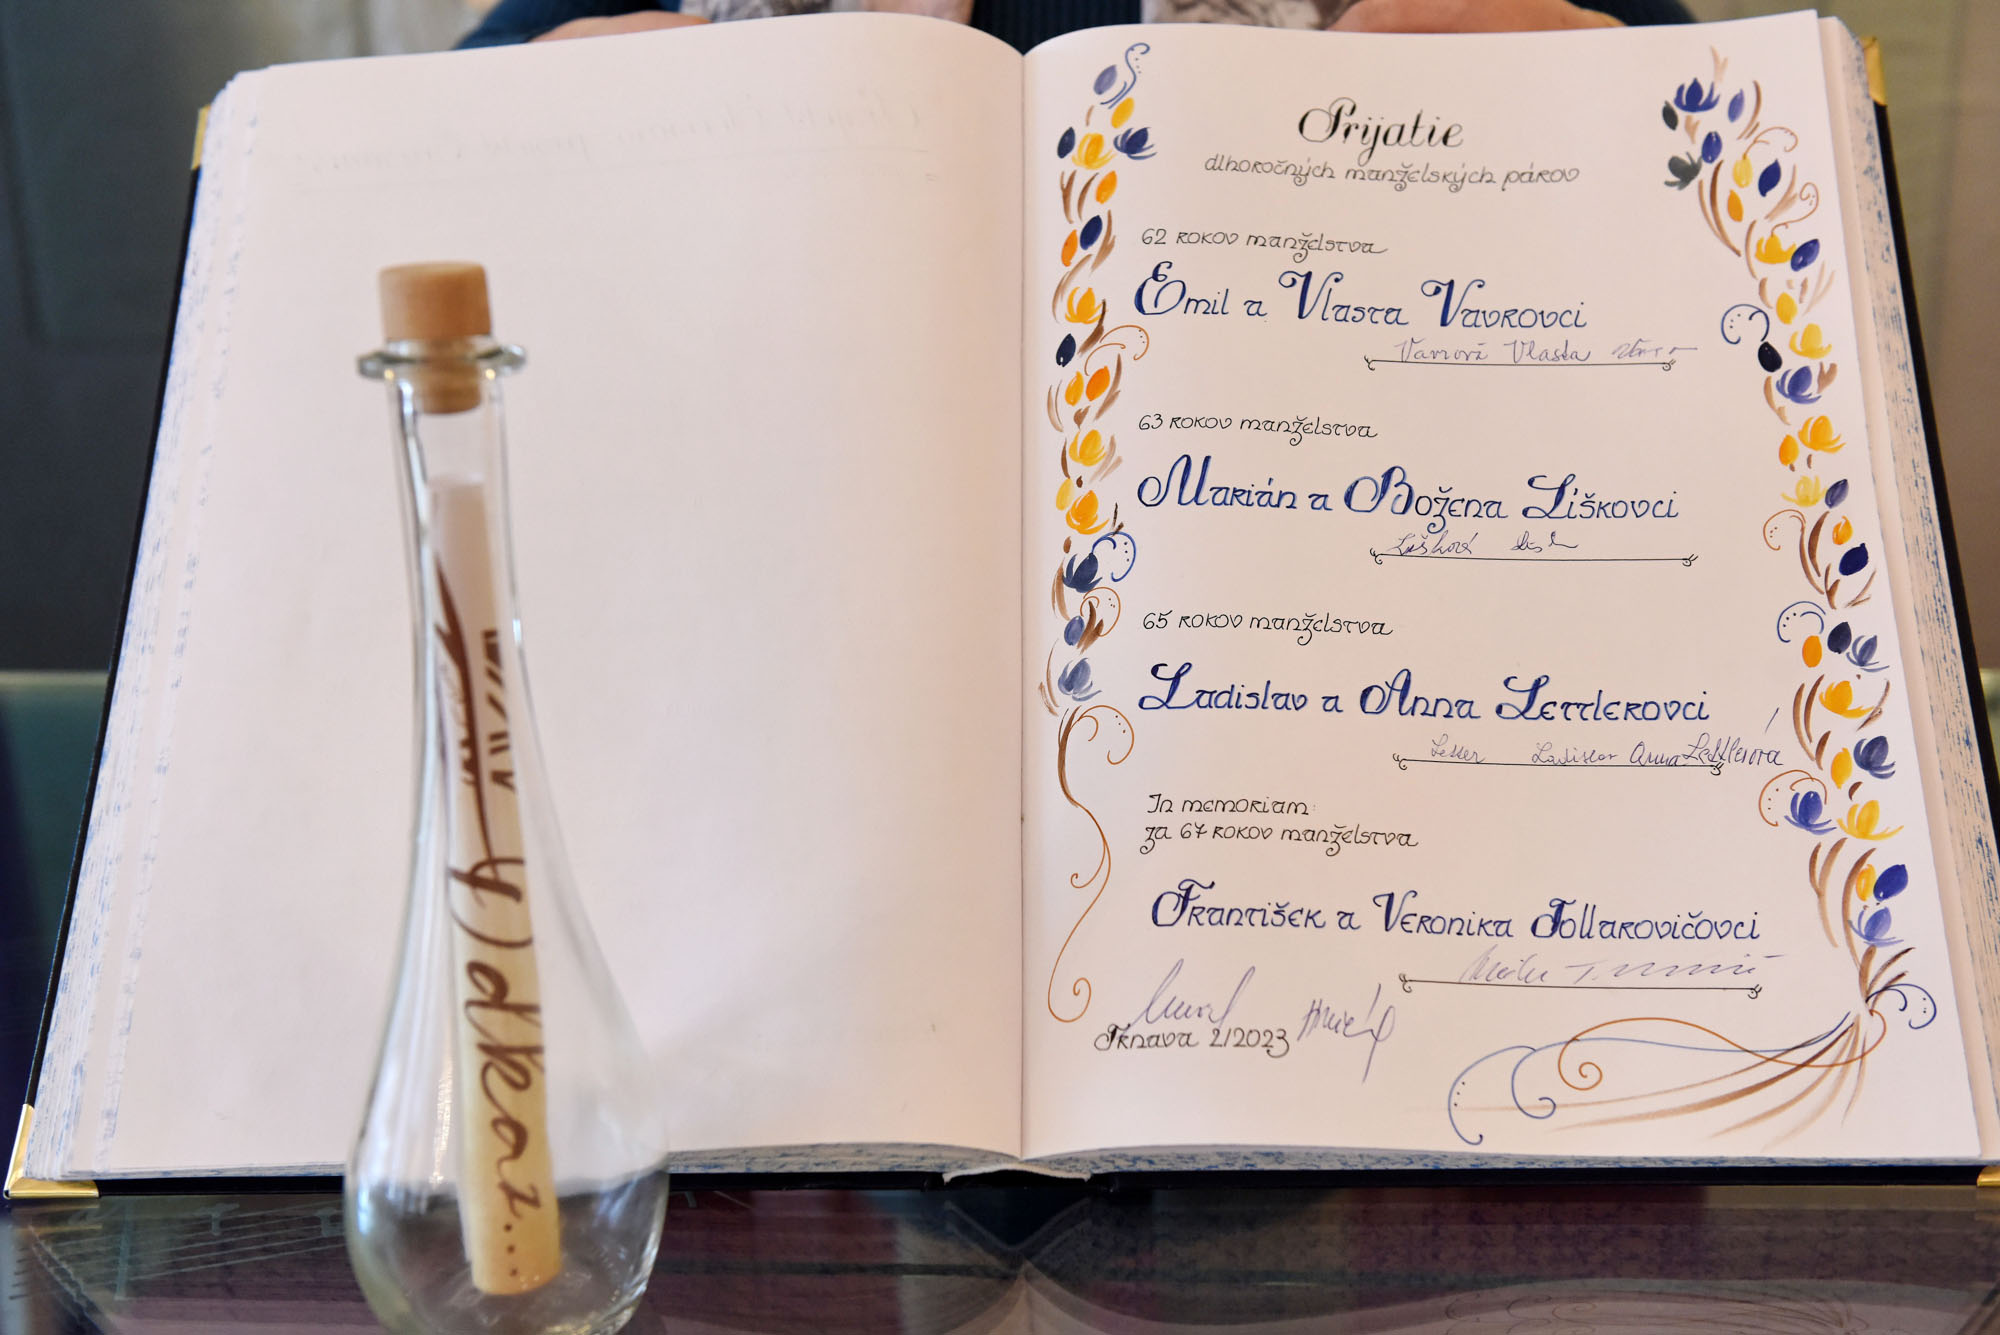 Prijatie
dlhoročných manželských párov
62 rokov manželstva
Emil a Vlasta Vavrovci
Vavrová Vlasta
63 rokov manželstva
Marián a Božena Líškovci
Líšková
65 rokov manželstva
Ladislav a Anna Lettlerovci
Ladislav Anna Lettlerová
In memoriam:
za 67 rokov manželstva
František a Veronika Tollarovičovci
Trnava 2/2023
odkaz...